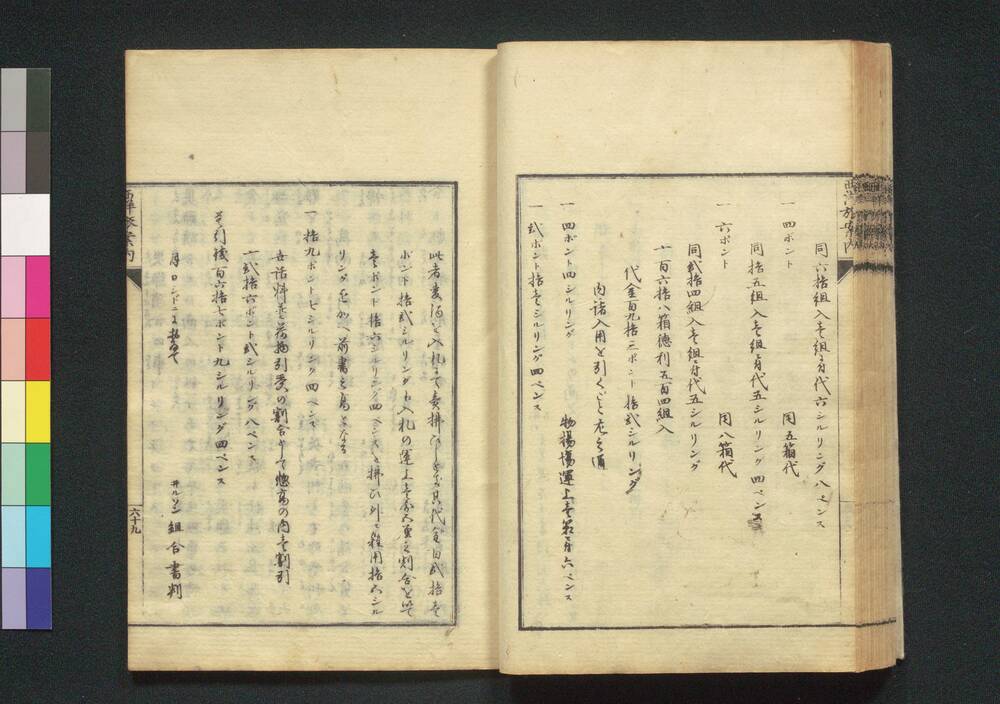 西洋旅案内
同六拾組入壱組ニ付代六シルリング八ペンス
一四ポント 同五箱代
同拾五組入壱組ニ付代五シルリング四ペンス
一六ポント 同八箱代
同弐拾四組入壱組ニ付代五シルリング
〆百六拾八箱徳利五百四組入
代金百九拾三ポント拾弐シルリング
内諸入用を引くこと左之通
一四ポント四シルリング 物揚場運上壱箱ニ付六ペンス
一弐ポント拾壱シルリング四ペンス
此者麦酒を入札にて売拂
ポント拾弐シルリング入札の運上壱分
壱ポント拾六シルリング四ペンスを拂ひ外ニ雑用拾六シル
リングを加へ前書之高となる
〆拾九ポント七シルリング四ペンス
五諸料并荷物引受の割合として惣高の内壱割引
〆弐拾六ポント弐シルリング八ペンス
差引残百六拾七ポント九シルリング四ペンス
月ロンドンニ於て
ヰルソン組合書判
西洋旅案内
六十九